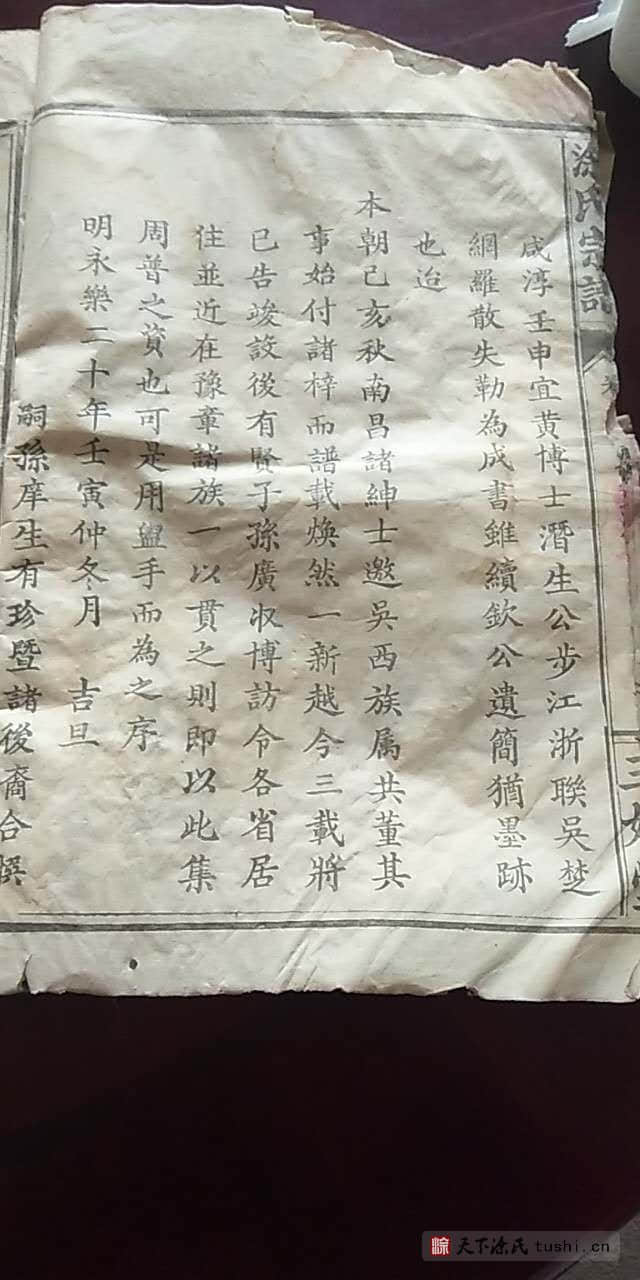 涂氏宗譜
咸淳壬申宜黄博士潛生公步江浙聯吳楚
網羅散失勒為成書雖續欽公遺簡猶墨跡
也迨
本朝己亥秋南昌諸紳士邀吳西族属共董其
事始付諸梓而譜載煥然一新越今三載將
已告竣設後有賢子孫廣收博訪令各省居
住並近在豫章諸族一以貫之則即以此集
周普之資也可是用盥手而為之序
明永樂二十年壬寅仲冬月 吉旦
嗣孫庠生有珍暨諸後裔合撰
天下涂氏 tushi.cn